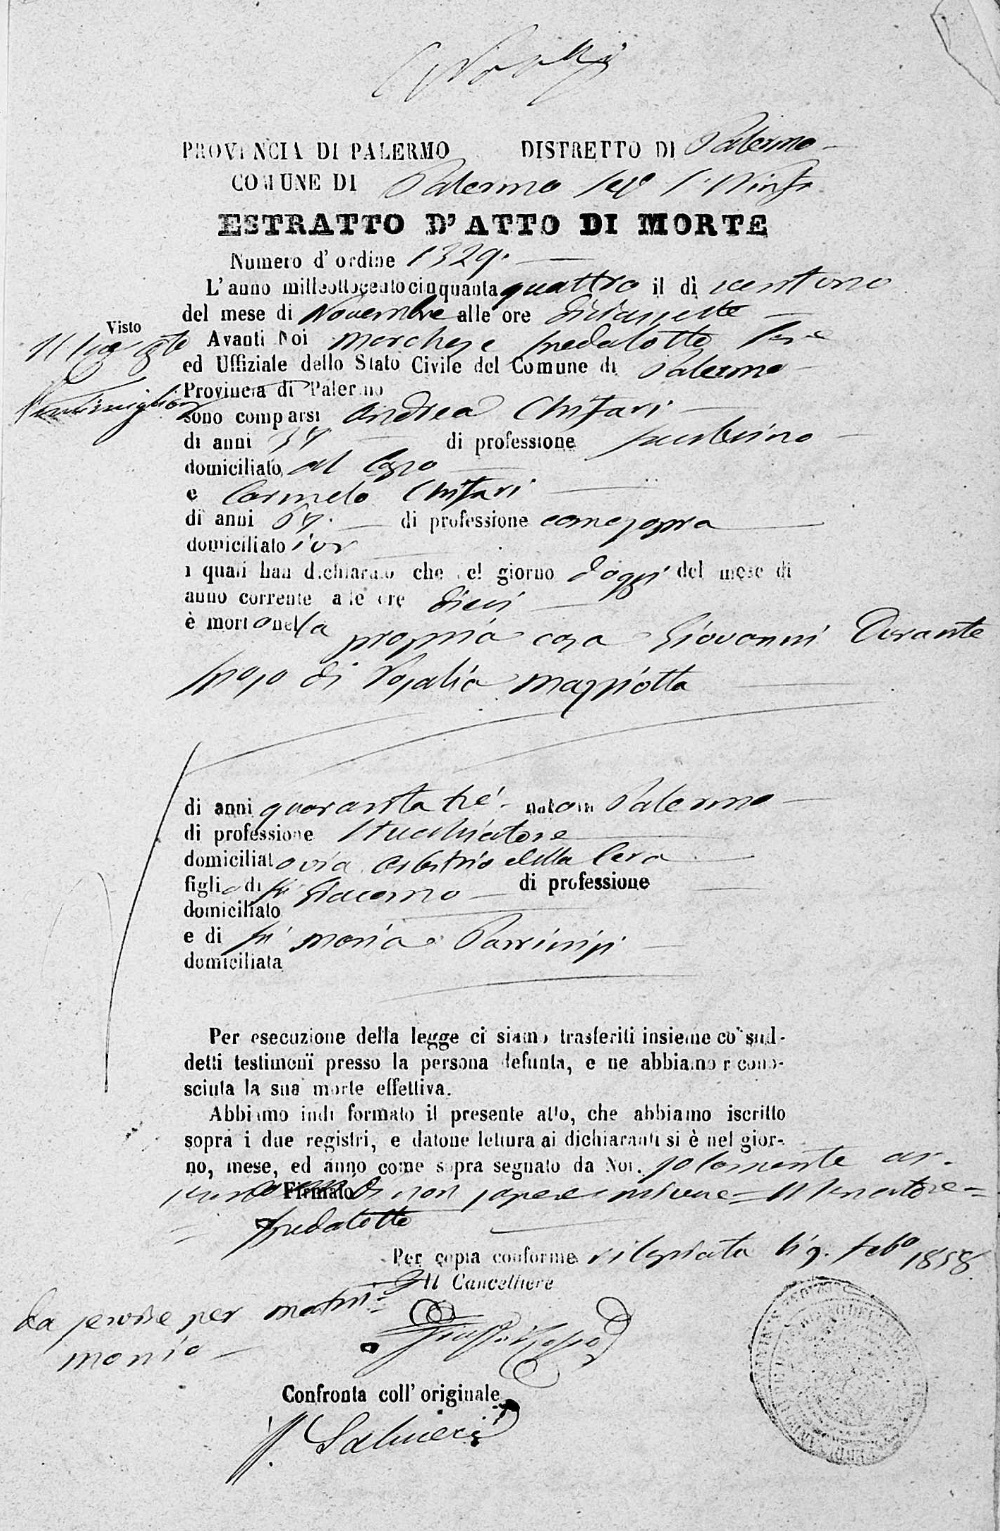 PROVINCIA DI PALERMO DISTRETTO DI Palermo
COMUNE DI Palermo Sez.e S. Ninfa
ESTRATTO D'ATTO DI MORTE
Numero d'ordine 1329.
L'anno milleottocentocinquantaquattro il di ventuno
del mese di Novembre alle ore diciassette
Visto
Avanti Noi Marchese Spedalotto
ed Uffiziale dello Stato Civile del Comune di Palermo
Provincia di Palermo
Ventimiglia
sono comparsi Andrea Chifari
di anni 37 di professione
domiciliato al Capo
e Carmelo Chifari
di anni 67 di professione come sopra
domiciliato ivi
i quali han dichiarato che nel giorno d'oggi del mese di
anno corrente alle ore dieci
è morto nella propria casa Giovanni Durante
sposo di Rosalia Magliotta
di anni quarantatre nato in Palermo
di professione Stucchiatore
domiciliato via della Cera
figlio di fù Giacomo di professione
domiciliato
e di fù Maria Parrinisi
domiciliata
Per esecuzione della legge ci siamo trasferiti insieme co' sud-
detti testimonï presso la persona defunta, e ne abbiamo ricono-
sciuta la sua morte effettiva.
Abbiamo indi formato il presente atto, che abbiamo iscritto
sopra i due registri, e datone lettura ai dichiaranti si è nel gior-
no, mese, ed anno come sopra segnato da Noi. solamente as-
Firmato non sapere scrivere = Il Senatore =
Spedalotto
Per copia conforme rilasciata li 9. Febo 1858
Il Cancelliere
Da servire per matri-
monio
Confronta coll'originale
Salvieri